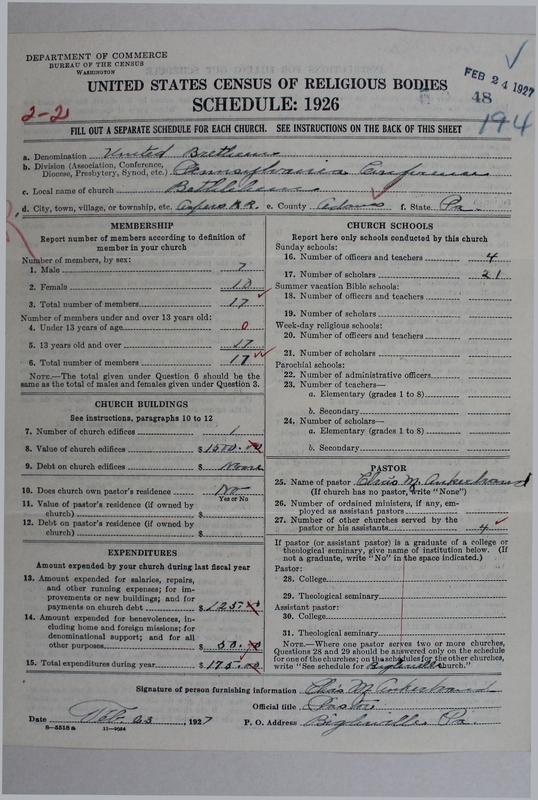 DEPARTMENT OF COMMERCE
BUREAU OF THE CENSUS
WASHINGTON
FEB 24 1927
UNITED STATES CENSUS OF RELIGIOUS BODIES
SCHEDULE: 1926
48
2-21
194
FILL OUT A SEPARATE SCHEDULE FOR EACH CHURCH. SEE INSTRUCTIONS ON THE BACK OF THIS SHEET
a. Denomination United Brethren
b. Division (Association, Conference, Diocese, Presbytery, Synod, etc.) Pennsylvania Conference
c. Local name of church Bethlehem
d. City, town, village, or township, etc. Aspers R.R. e. County Adams f. State Pa.
MEMBERSHIP
Report number of members according to definition of
member in your church
Number of members, by sex:
1. Male 7
2. Female 10
3. Total number of members 17
Number of members under and over 13 years old:
4. Under 13 years of age 0
5. 13 years old and over 17
6. Total number of members 17
NOTE.—The total given under Question 6 should be the
same as the total of males and females given under Question 3.
CHURCH BUILDINGS
See instructions, paragraphs 10 to 12
7. Number of church edifices 1
8. Value of church edifices $1500.00
9. Debt on church edifices $ None
10. Does church own pastor's residence No
Yes or No
11. Value of pastor's residence (if owned by
church) $
12. Debt on pastor's residence (if owned by
church) $
EXPENDITURES
Amount expended by your church during last fiscal year
13. Amount expended for salaries, repairs,
and other running expenses; for im-
provements or new buildings; and for
payments on church debt $125.00
14. Amount expended for benevolences, in-
cluding home and foreign missions; for
denominational support; and for all
other purposes $50.00
15. Total expenditures during year $175.00
CHURCH SCHOOLS
Report here only schools conducted by this church
Sunday schools:
16. Number of officers and teachers 4
17. Number of scholars 21
Summer vacation Bible schools:
18. Number of officers and teachers
19. Number of scholars
Week-day religious schools:
20. Number of officers and teachers
21. Number of scholars
Parochial schools:
22. Number of administrative officers
23. Number of teachers—
a. Elementary (grades 1 to 8)
b. Secondary
24. Number of scholars—
a. Elementary (grades 1 to 8)
b. Secondary
PASTOR
25. Name of pastor
(If church has no pastor, write "None")
26. Number of ordained ministers, if any, em-
ployed as assistant pastors
27. Number of other churches served by the
pastor or his assistants 4
If pastor (or assistant pastor) is a graduate of a college or
theological seminary, give name of institution below. (If
not a graduate, write "No" in the space indicated.)
Pastor:
28. College
29. Theological seminary
Assistant pastor:
30. College
31. Theological seminary
NOTE.—Where one pastor serves two or more churches,
Questions 28 and 29 should be answered only on the schedule
for one of the churches; on the schedules for the other churches,
write "See schedule for Biglerville church."
Signature of person furnishing information
Official title Pastor
Date Feb. 23, 1927 P. O. Address Biglerville Pa.
8—5518 a 11—9034